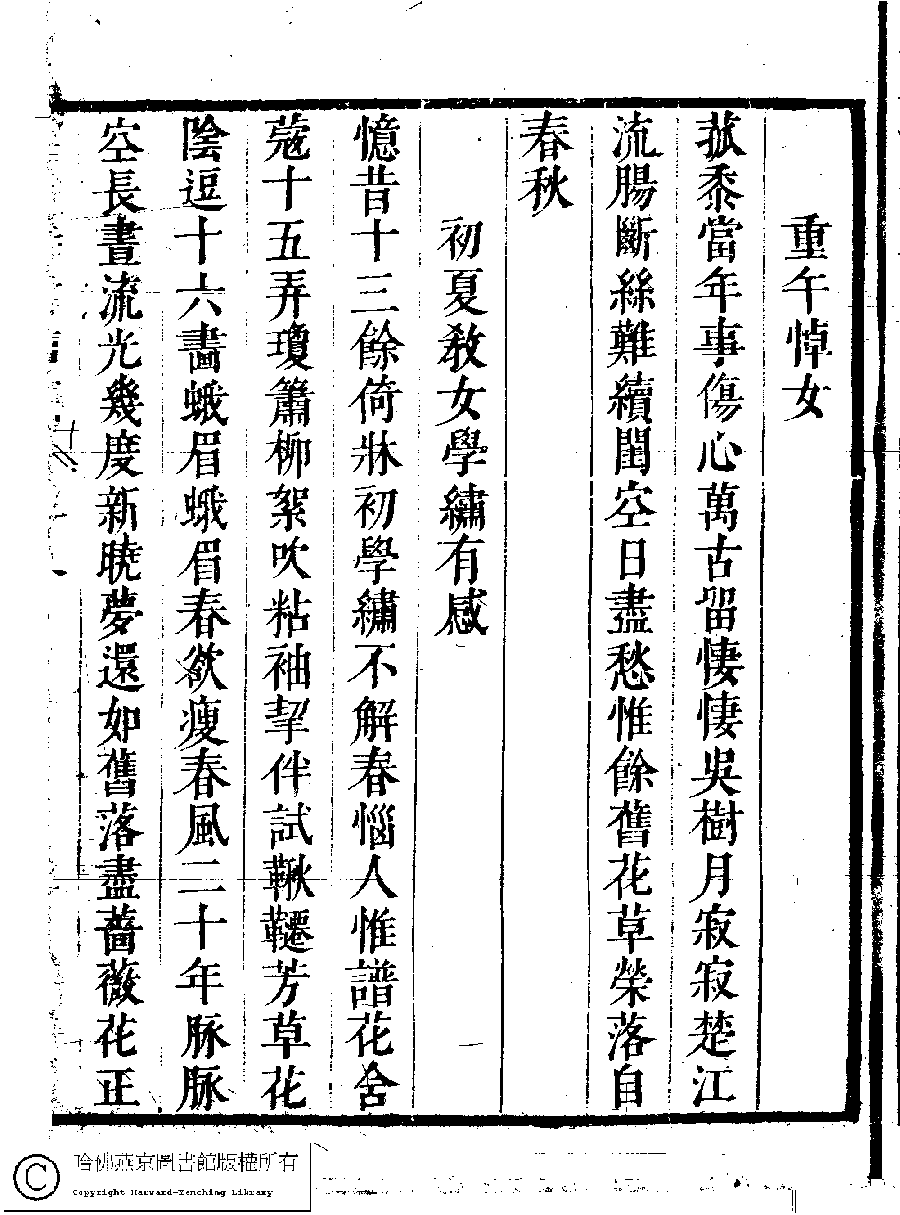 重午悼女
菰黍當年事傷心萬古留悽悽吳樹月寂寂楚江
流腸斷絲難續閨空日盡愁惟餘舊花草榮落自
春秋
初夏教女學繡有感
憶昔十三餘倚牀初學繡不解春惱人惟譜花含
蔻十五弄瓊簫柳絮吹粘袖挈伴試鞦韆芳草花
陰逗十六畵蛾眉蛾眉春欲瘦春風二十年脉脉
空長晝流光幾度新曉夢還如舊落盡薔薇花正
哈佛燕京圖書館版權所有
Copyright Harvard-Yenching Library